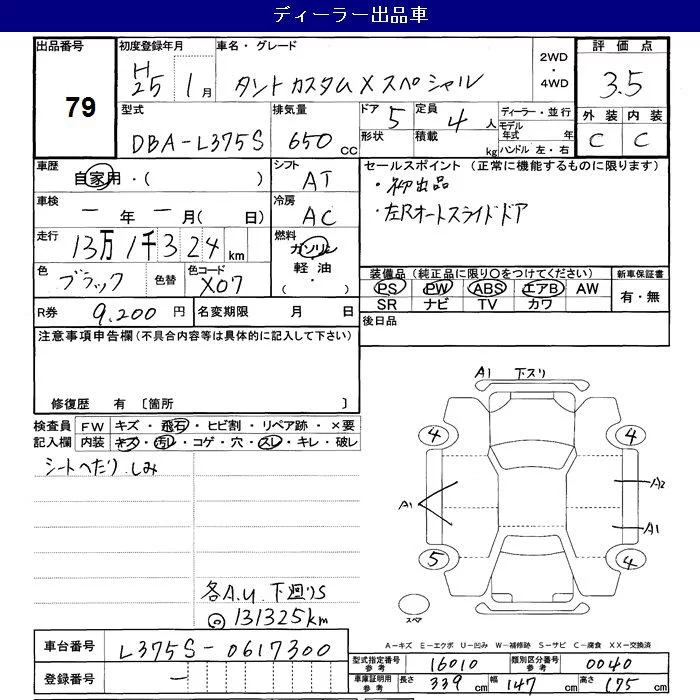 ディーラー出品車
出品番号 79
初度登録年月 H25 1月
車名・グレード タントカスタムXスペシャル
2WD ・ 4WD
評価点 3.5
外装 内装
C C
型式 DBA-L375S
排気量 650 cc
ドア 5 定員 4 人
形状 積載 kg
ディーラー・並行
モデル年式 年
ハンドル 左・右
車歴 自家用・( )
シフト AT
セールスポイント (正常に機能するものに限ります)
・初出品
・左Rオートスライドドア
車検 ー年ー月( 日)
冷房 AC
走行 13万1千324km
燃料 ガソリン 軽油 ・( )
色 ブラック 色替 色コード X07
装備品(純正品に限り○をつけてください)
PS PW ABS エアB AW
SR ナビ TV カワ
新車保証書
有・無
R券 9,200円
名変期限 月 日
後日品
注意事項申告欄(不具合内容等は具体的に記入して下さい)
修復歴 有 〔箇所 〕
検査員記入欄
FW キズ・飛石・ヒビ割・リペア跡・×要
内装 キズ・汚レ・コゲ・穴・スレ・キレ・破レ
シートへたり.しみ
各A.U.下廻りS
◎131325km
A1 下スリ
4 4
A1 A2
A1
5 4
スペア
A-キズ E-エクボ U-凹み W-補修跡 S-サビ C-腐食 XX-交換済
車台番号 L375S-0617300
登録番号 ー
型式指定番号 参考 16010 類別区分番号 参考 0040
車庫証明用 参考 長さ 339cm 幅 147cm 高さ 175cm